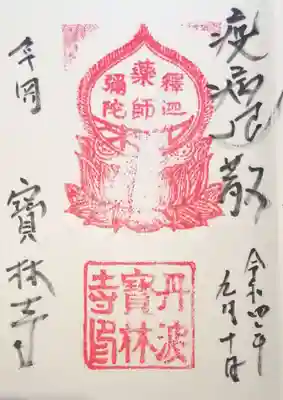 疫病退散
令和四年
九月十日
釋迦
藥師
彌陀
丹波
寶林
寺印
千岡
寳林寺